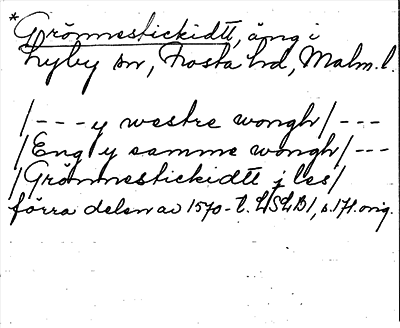 *Grönnestickidtt, äng i
Lyby sn, Frosta hd, Malm. l.
/---y westre wongh/---
/Eng y samme wongh/---
/Grönnestickidtt j les/
förra delen av 1570-t. LSLB 1, s. 171. orig.